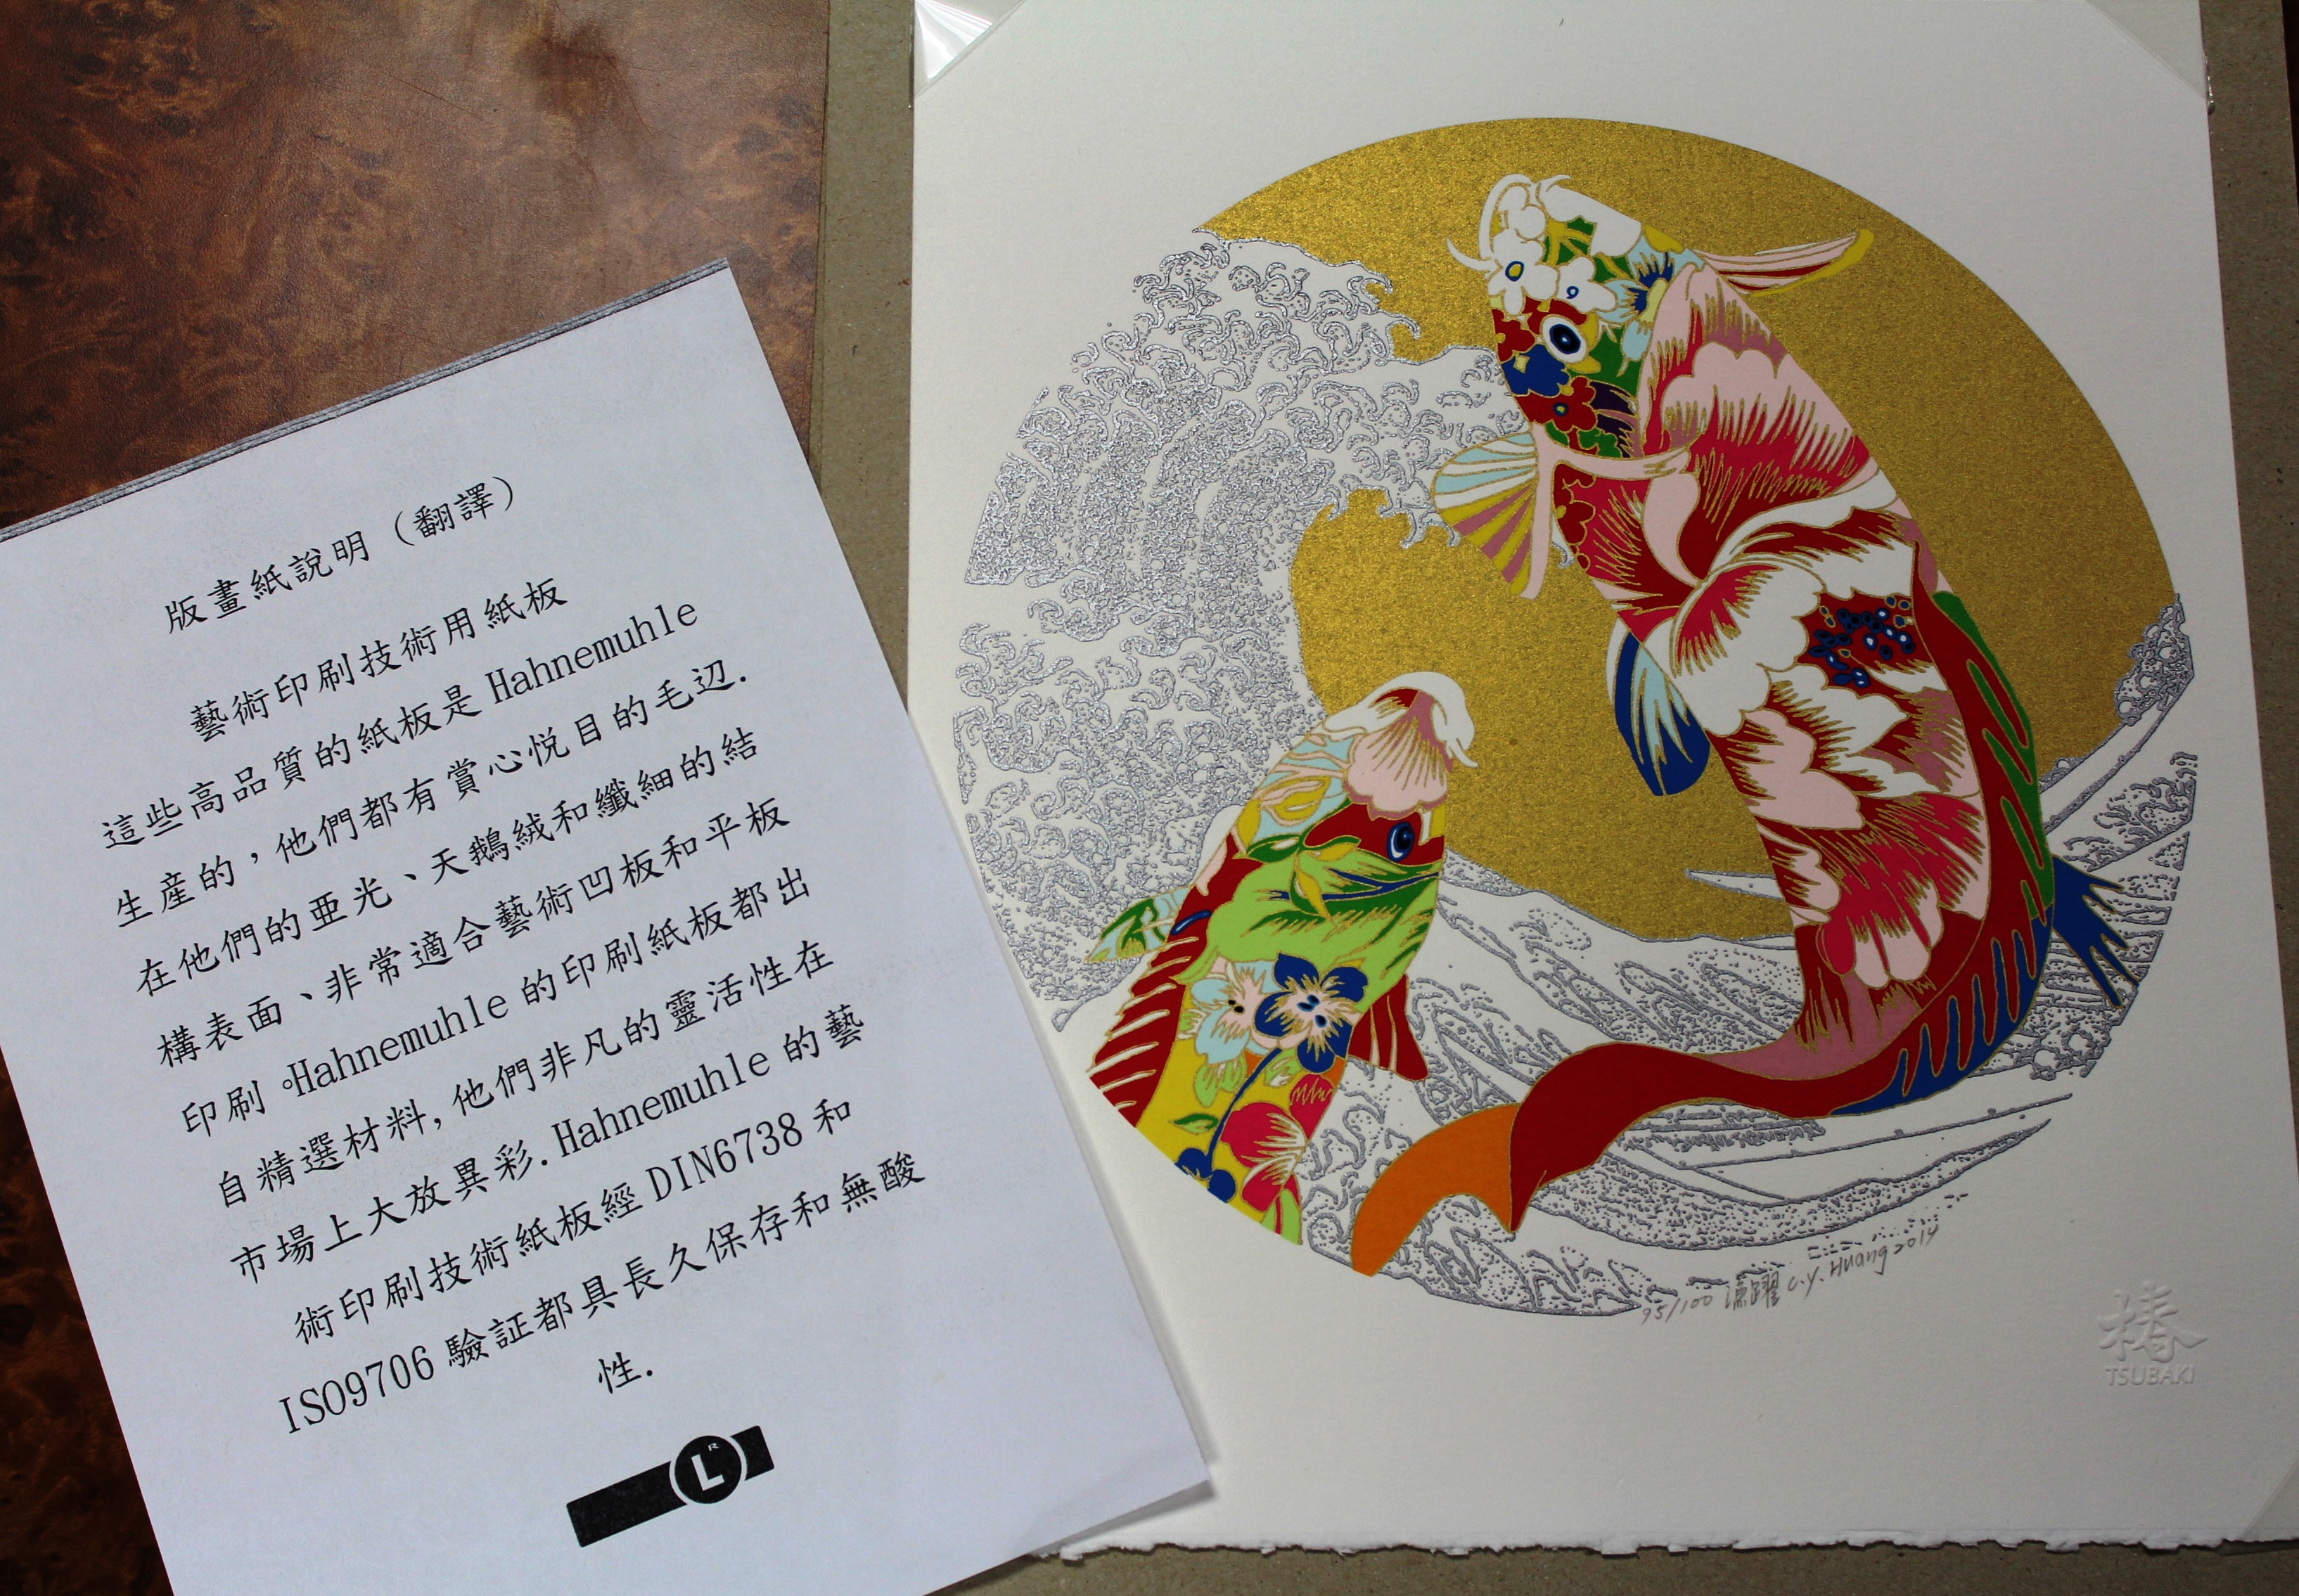 版畫紙說明（翻譯）
藝術印刷技術用紙板
這些高品質的紙板是 Hahnemuhle
生產的，他們都有賞心悅目的毛辺.
在他們的亞光、天鵝絨和纖細的結
構表面、非常適合藝術凹板和平板
印刷。Hahnemuhle 的印刷紙板都出
自精選材料,他們非凡的靈活性在
市場上大放異彩.Hahnemuhle 的藝
術印刷技術紙板經 DIN6738 和
ISO9706 驗証都具長久保存和無酸
性.
L R
95/100 漁躍 C.Y. Huang 2014
椿
TSUBAKI